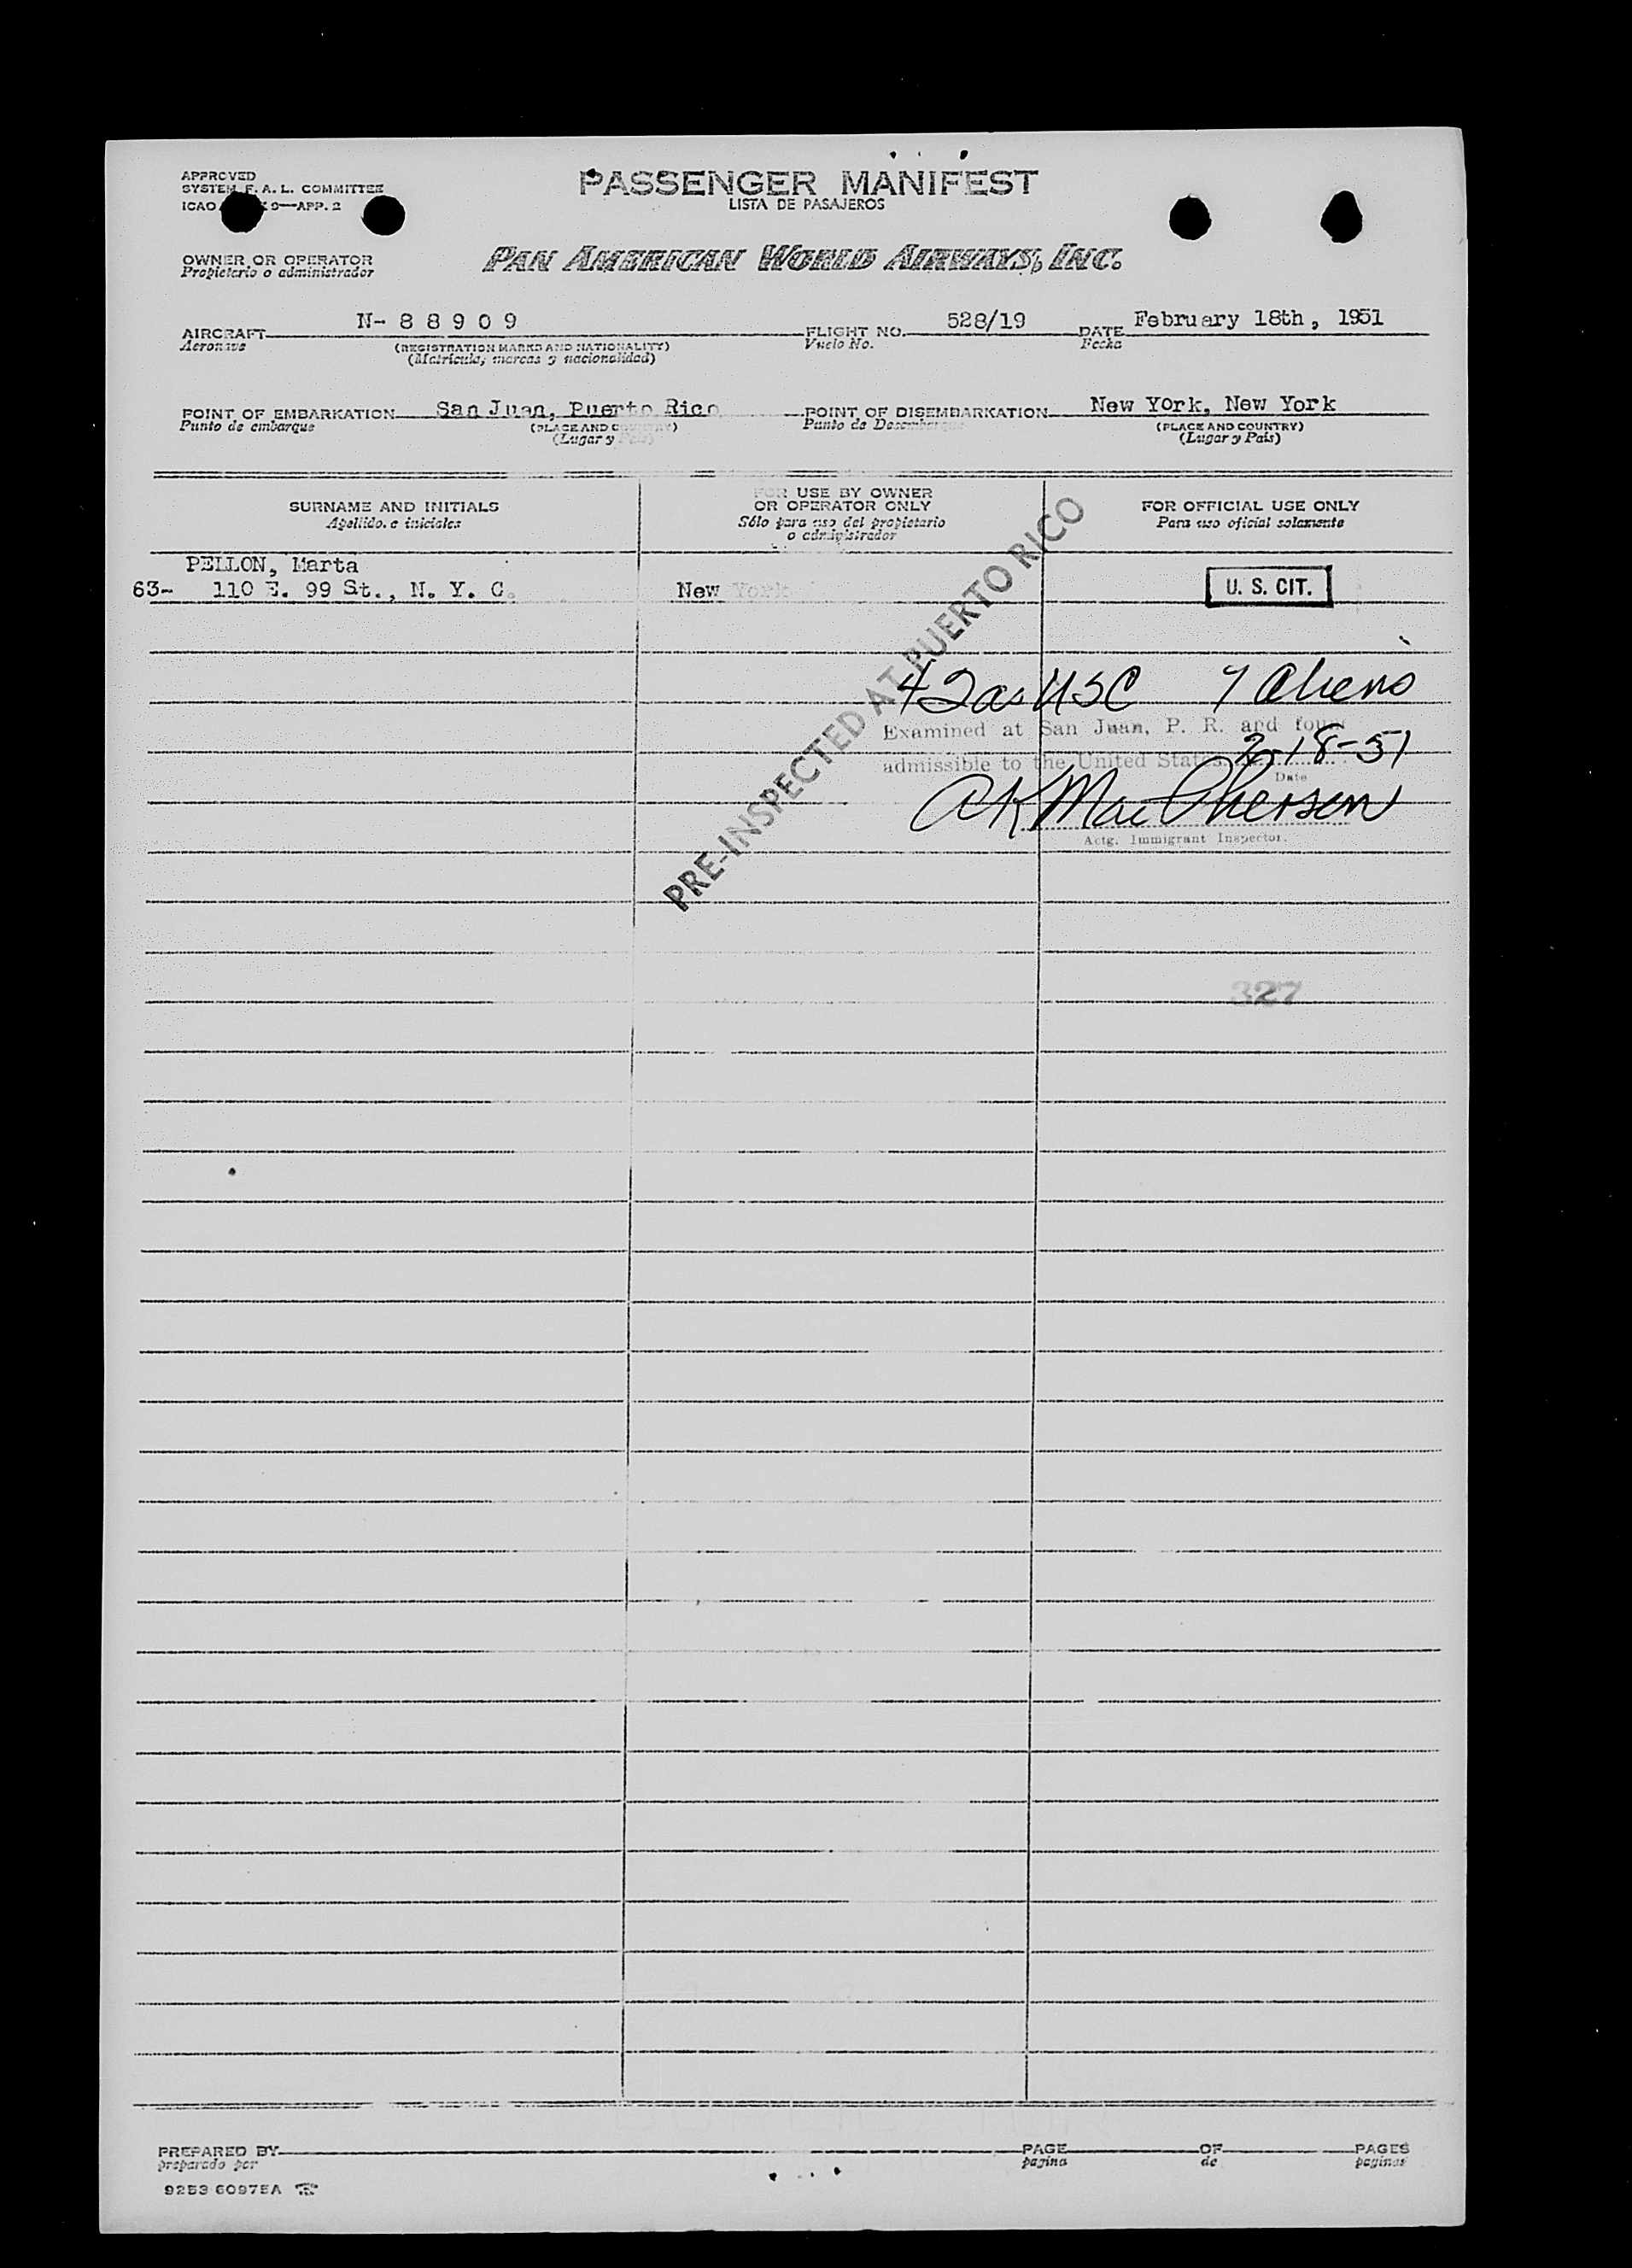 APPROVED
SYSTEM F. A. L. COMMITTEE
ICAO 9—APP. 2
PASSENGER MANIFEST
LISTA DE PASAJEROS
OWNER OR OPERATOR
Propietario o administrador
PAN AMERICAN WORLD AIRWAYS, INC.
AIRCRAFT N- 8 8 9 0 9 FLIGHT NO. 528/19 DATE February 18th, 1951
Aeronave (REGISTRATION MARKS AND NATIONALITY) Vuelo No. Fecha
(Matrícula, marcas y nacionalidad)
POINT OF EMBARKATION San Juan, Puerto Rico POINT OF DISEMBARKATION New York, New York
Punto de embarque (PLACE AND COUNTRY) Punto de Desembarque (PLACE AND COUNTRY)
(Lugar y País) (Lugar y País)
SURNAME AND INITIALS
Apellido e iniciales
FOR USE BY OWNER
OR OPERATOR ONLY
Sólo para uso del propietario
o administrador
FOR OFFICIAL USE ONLY
Para uso oficial solamente
PELLON, Marta
63- 110 E. 99 St., N. Y. C. New York U. S. CIT.
PRE-INSPECTED AT PUERTO RICO
USC 7 Aliens
Examined at San Juan, P. R. and found
admissible to the United States. 2-18-51
Date
A K MacPherson
Actg. Immigrant Inspector.
327
PREPARED BY PAGE OF PAGES
preparado por pagina de paginas
9253 60975A